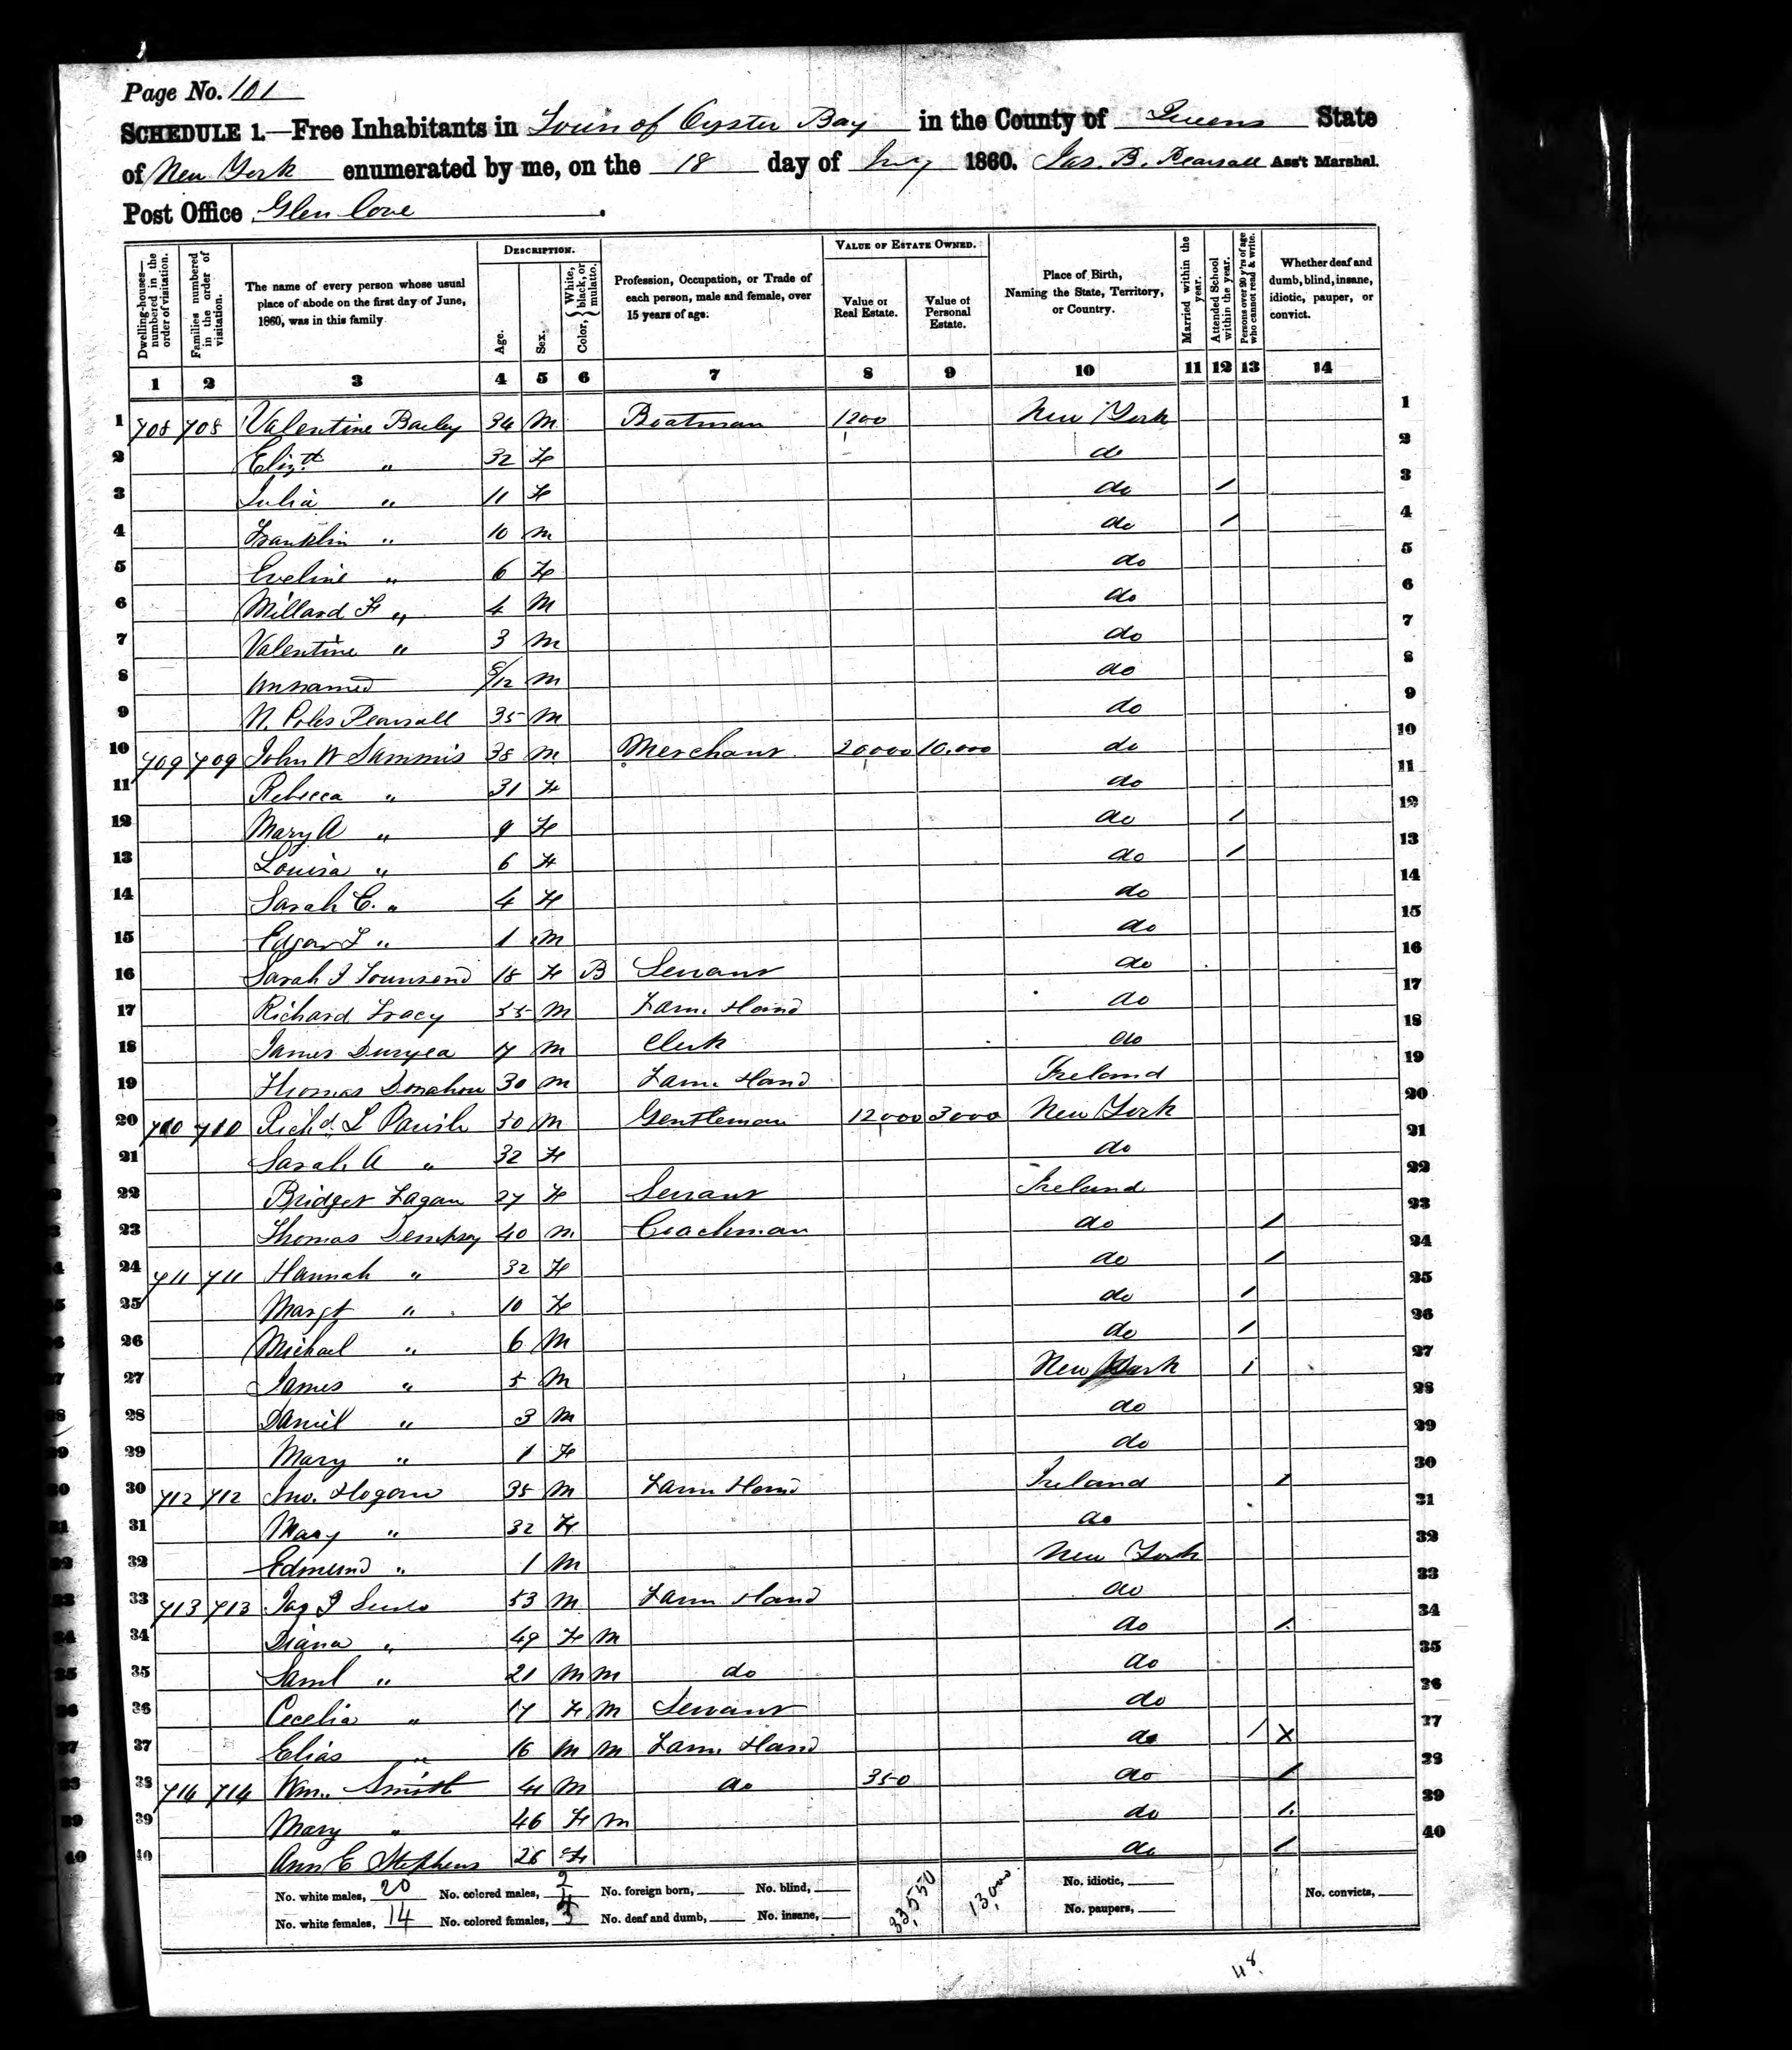 Page No. 101
SCHEDULE 1.—Free Inhabitants in Town of Oyster Bay in the County of Queens State
of New York enumerated by me, on the 18 day of July 1860. Jas. B. Pearsall Ass't Marshal.
Post Office Glen Cove.
Dwelling-houses—numbered in the order of visitation.
Families numbered in the order of visitation.
The name of every person whose usual place of abode on the first day of June, 1860, was in this family
DESCRIPTION.
Age.
Sex.
Color, { White, black, or mulatto.
Profession, Occupation, or Trade of each person, male and female, over 15 years of age.
VALUE OF ESTATE OWNED.
Value of Real Estate.
Value of Personal Estate.
Place of Birth, Naming the State, Territory, or Country.
Married within the year.
Attended School within the year.
Persons over 20 y'rs of age who cannot read & write.
Whether deaf and dumb, blind, insane, idiotic, pauper, or convict.
1 2 3 4 5 6 7 8 9 10 11 12 13 14
1 708 708 Valentine Bailey 34 M Boatman 1200 New York 1
2 Elizth " 32 F do 2
3 Julia " 11 F do / 3
4 Franklin " 10 M do / 4
5 Eveline " 6 F do 5
6 Millard F " 4 M do 6
7 Valentine " 3 M do 7
8 Unnamed 8/12 M do 8
9 N. Coles Pearsall 35 M do 9
10 709 709 John W Sammis 38 M Merchant 20000 10,000 do 10
11 Rebecca " 31 F do 11
12 Mary A " 9 F do / 12
13 Louisa " 6 F do / 13
14 Sarah C. " 4 F do 14
15 Edgar L " 1 M do 15
16 Sarah J Townsend 18 F B Servant do 16
17 Richard Tracy 35 M Farm Hand do 17
18 James Duryea 17 M Clerk do 18
19 Thomas Donahoue 30 M Farm Hand Ireland 19
20 710 710 Richd. L 30 M Gentleman 12000 3000 New York 20
21 Sarah A " 32 F do 21
22 Bridget Fagan 27 F Servant Ireland 22
23 Thomas Dempsey 40 M Coachman do / 23
24 711 711 Hannah " 32 F do / 24
25 Margt " 10 F do / 25
26 Michael " 6 M do / 26
27 James " 5 M New York / 27
28 Daniel " 3 M do 28
29 Mary " 1 F do 29
30 712 712 Jno. Hogan 35 M Farm Hand Ireland / 30
31 Mary " 32 F do 31
32 Edmund " 1 M New York 32
33 713 713 Jas J 53 M Farm Hand do 33
34 Diana " 49 F M do / 34
35 Saml " 21 M M do do 35
36 Cecelia " 17 F M Servant do 36
37 Elias " 16 M M Farm Hand do / X 37
38 714 714 Wm. Smith 41 M do 350 do / 38
39 Mary " 46 F M do / 39
40 Ann E Stephens 26 F do / 40
No. white males, 20 No. colored males, 2 No. foreign born, No. blind, 33,550 13,000 No. idiotic, No. convicts,
No. white females, 14 No. colored females, No. deaf and dumb, No. insane, No. paupers,